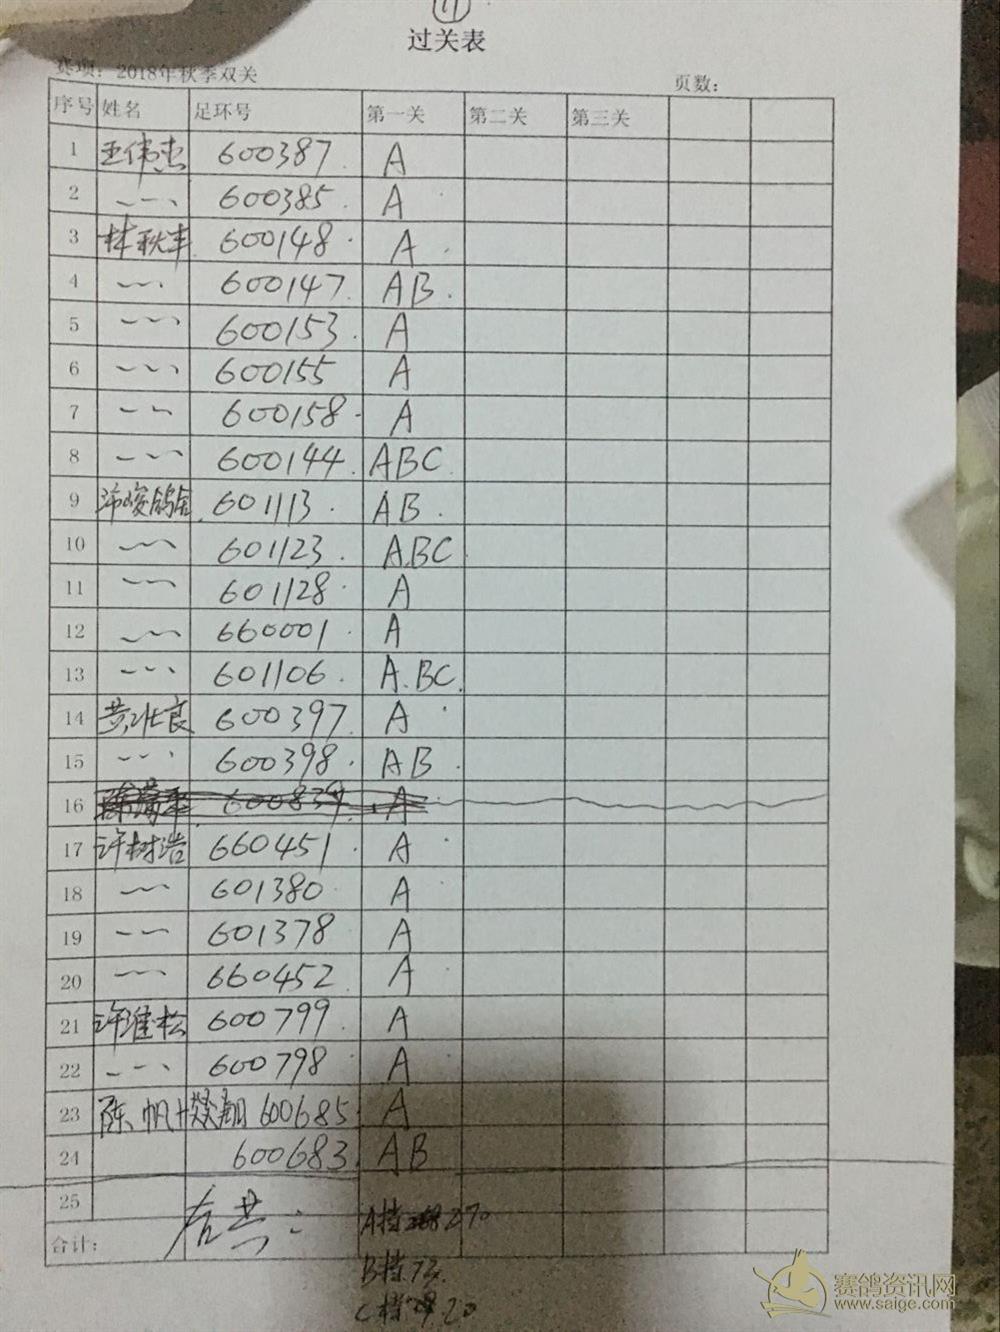 11
过关表
赛项: 2018年秋季双关 页数:
序号 姓名 足环号 第一关 第二关 第三关
1 王伟杰 600387. A
2 600385. A
3 林秋丰 600148. A.
4 600147. AB.
5 600153. A
6 600155 A
7 600158. A
8 600144. ABC.
9 沛峻鸽舍 601113. AB.
10 601123. A.BC
11 601128. A
12 660001. A
13 601106. A.BC.
14 黄壮良 600397. A
15 600398. AB.
16 600839. A
17 许树浩 660451. A
18 601380. A
19 601378. A
20 660452. A
21 许维松 600799. A
22 600798. A
23 陈帆 翔 600685. A
24 600683. AB
25
合计: 合共: A档 270
B档.73.
C档 20
赛鸽资讯网
www.saige.com